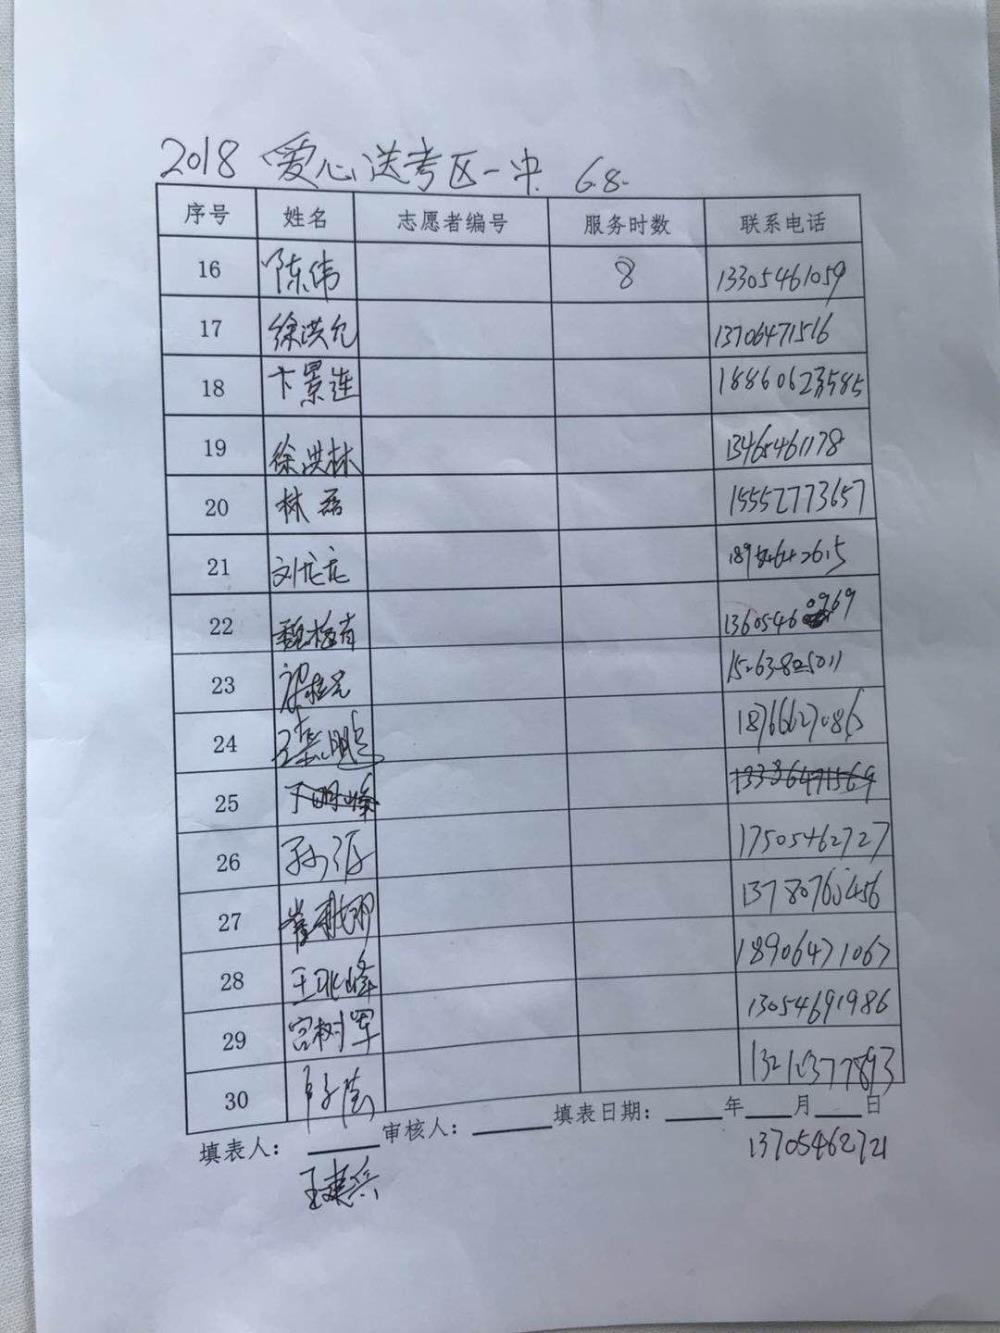 2018 爱心送考区一中 6.8.
序号 姓名 志愿者编号 服务时数 联系电话
16 陈伟 8 13305461059
17 徐洪允 13706471516
18 卞景连 18860623585
19 徐洪林 13465461178
20 林磊 15552773657
21 刘龙龙 18954642615
22 1360546 0969
23 15263825011
24 18766627086
25 丁明峰 13336471569
26 17505462727
27 13780765456
28 王兆峰 18906471067
29 宫树军 13054691986
30 13210377893
填表人： 审核人： 填表日期： 年 月 日
王建兵 13705462721